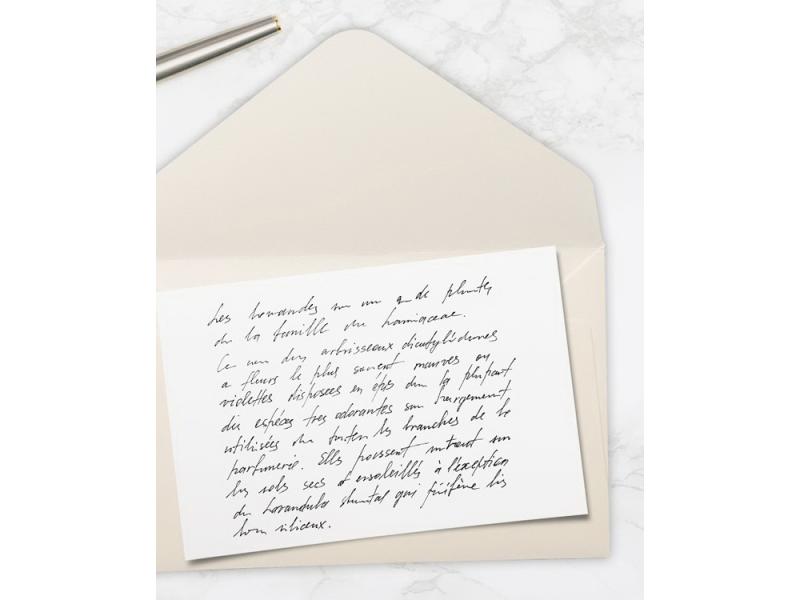 Les lavandes sont un g de plantes
de la famille des Lamiaceae.
Ce sont des arbrisseaux dicotylédones
a fleurs le plus souvent mauves ou
violettes disposées en épis dont la plupart
des espèces très odorantes sont largement
utilisées dans toutes les branches de la
parfumerie. Elles poussent surtout sur
les sols secs et ensoleillés à l'exception
du Lavandula qui préfère les
siliceux.